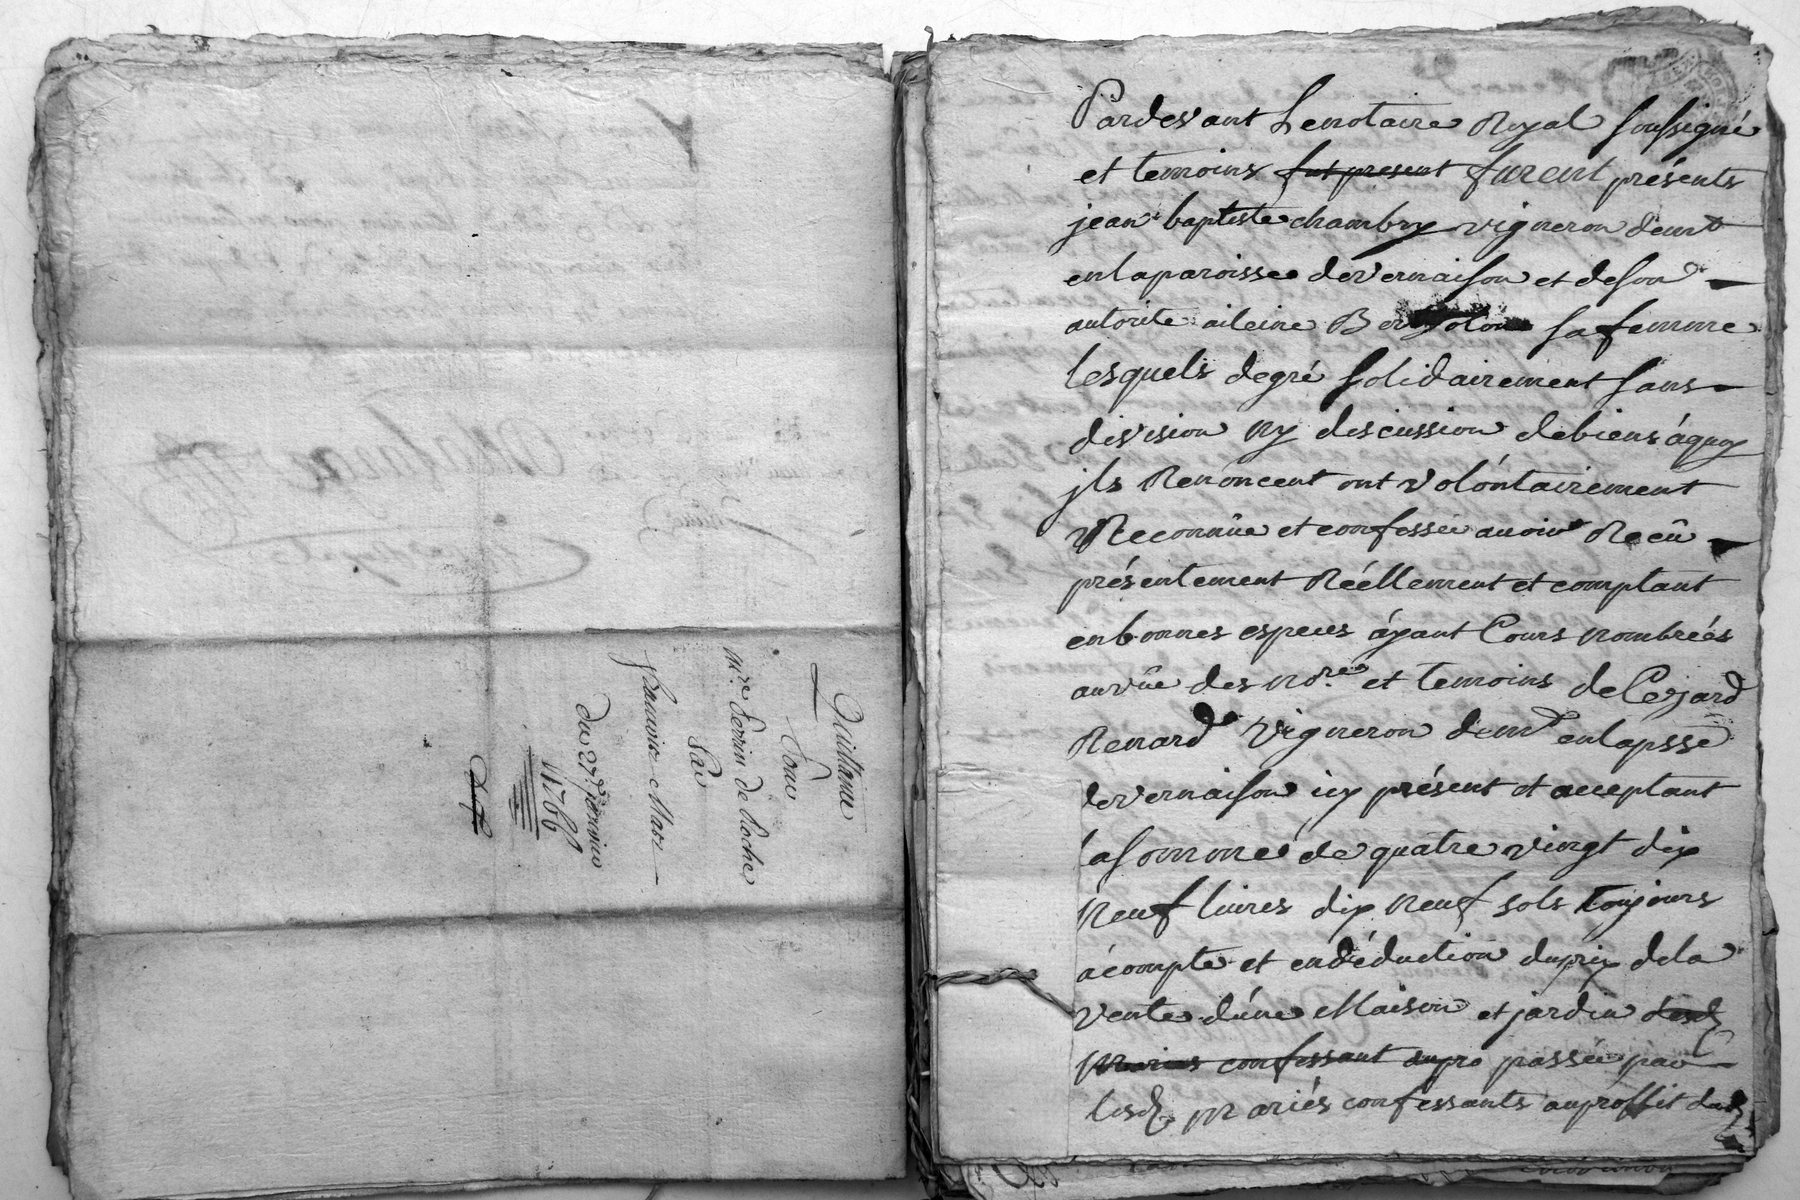 Quittance
Pour
mre. Perrin de Roche
Par
francois Marz
du 27e. janvier
1766
Pardevant Lenotaire Royal soussigné
et temoins fut present furent présents
jean baptiste chambry vigneron demt
enlaparoisse devernaison et deson
autorité Ber sa femme
lesquels degré solidairement sans
division ny discussion debiens áquoy
jls Renoncent ont volóntairement
Reconnüe et confessée avoir Recû
présentement Réellement et comptant
enbonnes especes áyant Cours nombrées
auvûe des nore. et temoins de Cezard
Renard vigneron demt enlapsse
devernaison icy présent et acceptant
lasomme de quatre vingt dix
neuf livres dix neuf sols toujours
ácompte et endéduction duprix dela
vente d'úne Maison et jardin desd
Mariés confessant aupro passée par
lesd. mariés confessants auproffit dud